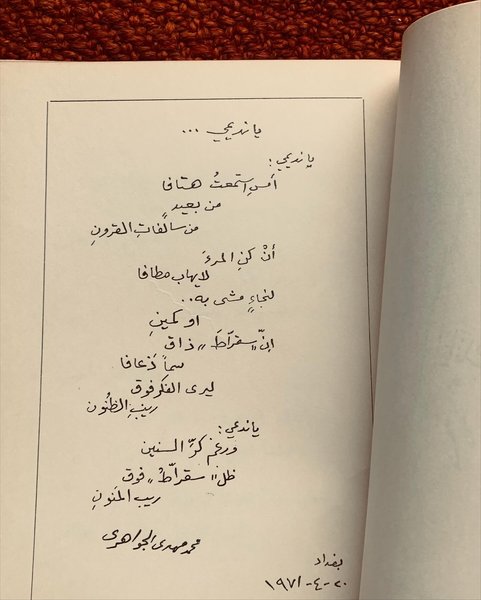 ياندیمي ...
ياندیمي :
أمسِ استمعتُ هتافا
من بعيدٍ
من سالفاتِ القرونِ
أنْ كنِ المرءَ
لايهاب مطافا
لنجاءٍ مشى به ..
او كمينِ
إنّ "سقرّاطَ" ذاق
سماً ذعافا
ليرى الفكر فوق
ريبِ الظنُون
ياندیمي :
ورغم كرِّ السنين
ظل "سقرّاطُ" فوق
ريب المنونِ
محمد مهدي الجواهري
بغداد
٢٠-٤-١٩٧١